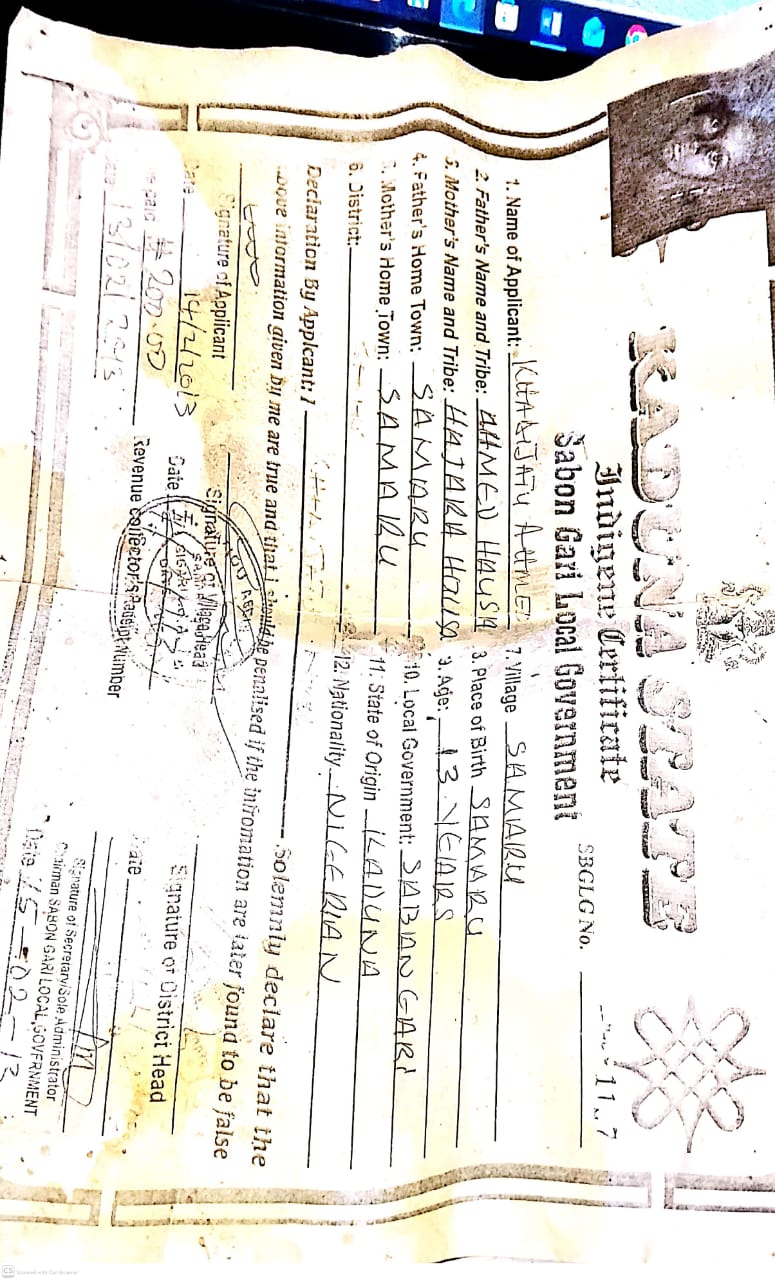 KADUNA STATE
Indigene Certificate
Sabon Gari Local Government
SBGLG No.
1. Name of Applicant: KHADIJATU AHMED
2. Father's Name and Tribe: AHMED HAUSA
3. Mother's Name and Tribe: HAJARA HAUSA
4. Father's Home Town: SAMARU
5. Mother's Home Town: SAMARU
6. District:
7. Village SAMARU
8. Place of Birth SAMARU
9. Age: 13 YEARS
10. Local Government: SABIAN GARI
11. State of Origin KADUNA
12. Nationality NIGERIAN
Declaration By Applcant: I Solemnly declare that the
above information given by me are true and that i should be penalised if the infromation are later found to be false
Signature of Applicant
Signature of Village Head
Signature of District Head
Date 14/2/2013
Date
Date
200.00
Revenue collector's Receipt Number
Date 13/02/2013
Signature of Secretary/Sole Administrator
Chairman SABON GARI LOCAL GOVERNMENT
Date 15-02-13
CS Scanned with CamScanner